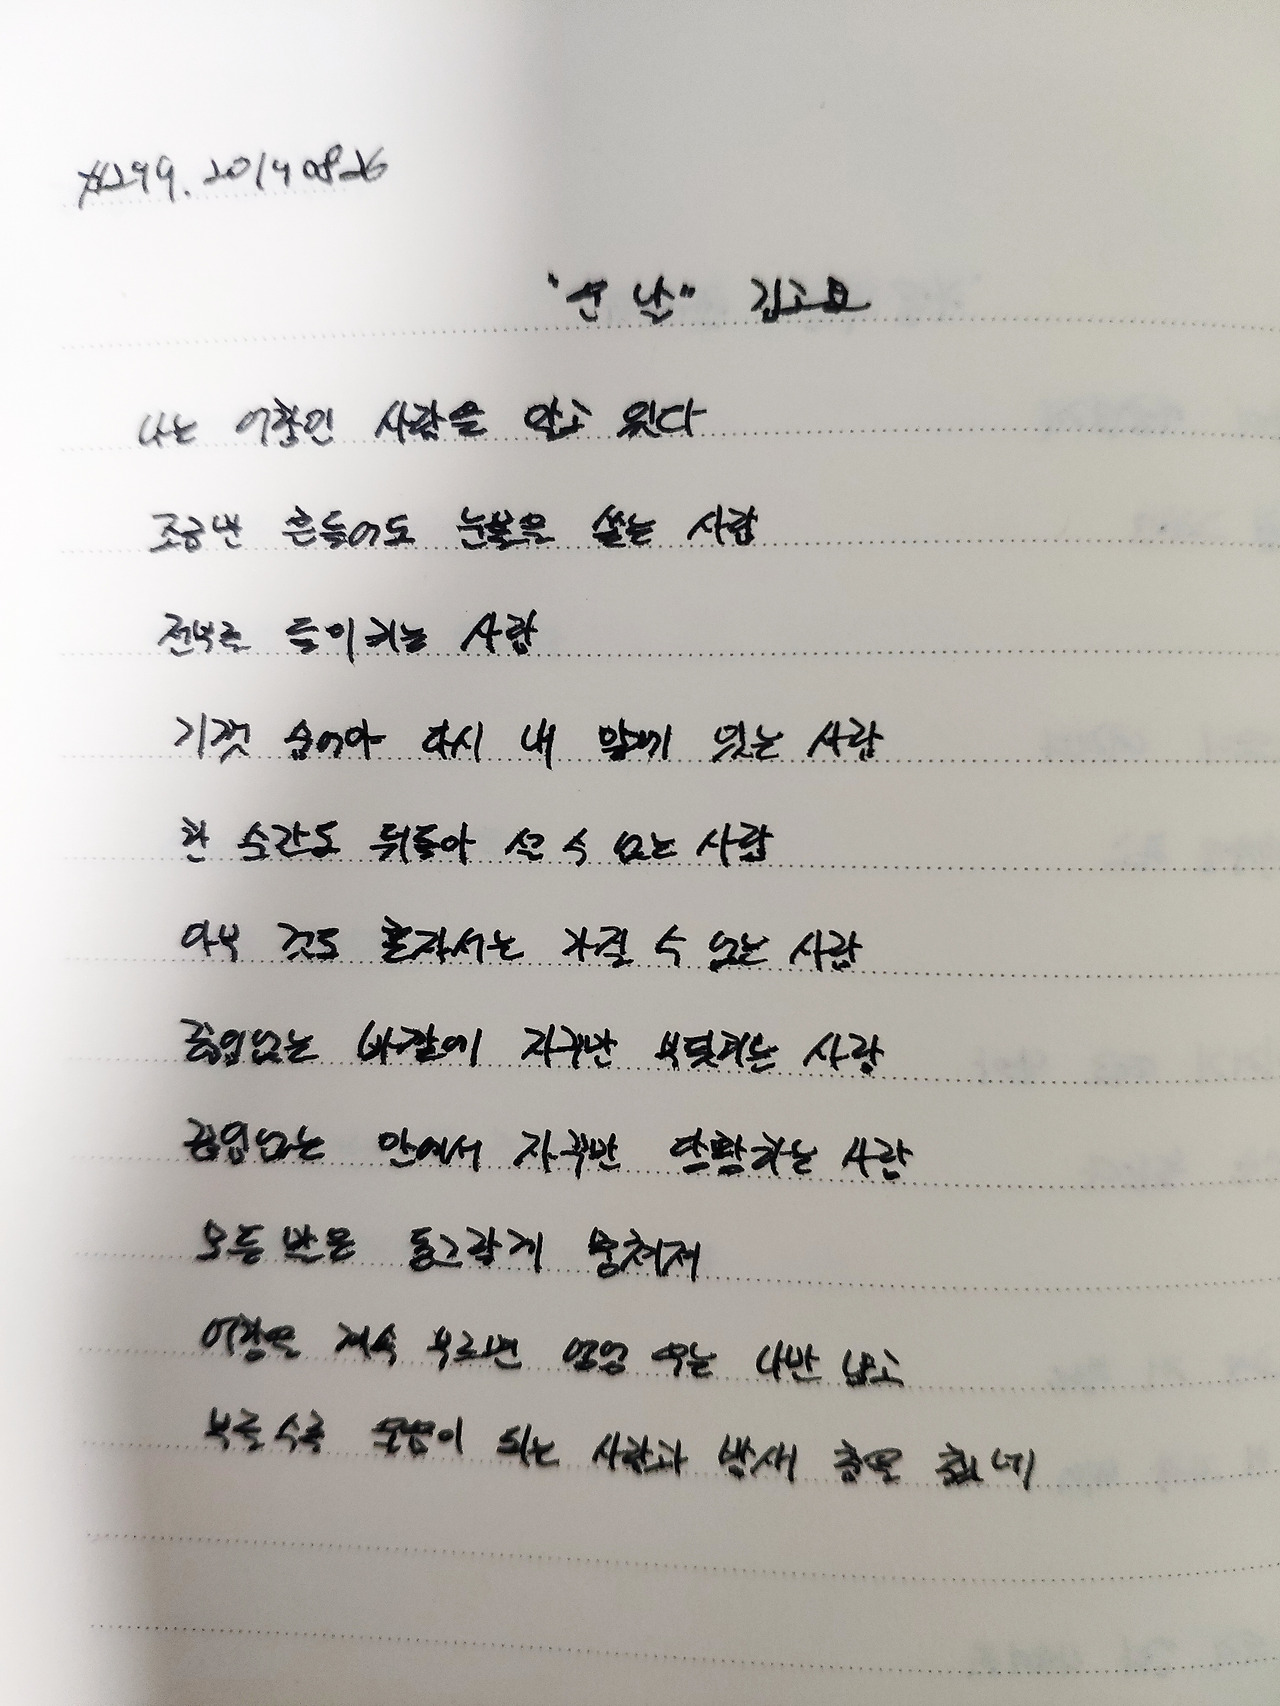 #299. 20190826
"운 날" 김고요
나는 어항인 사람을 알고 있다
조금만 흔들어도 눈물을 쏟는 사람
전부를 들이키는 사람
기껏 숨어야 다시 내 앞에 있는 사람
한 순간도 뒤돌아 설 수 없는 사람
아무 것도 혼자서는 가질 수 없는 사람
끊임없는 바깥에 자꾸만 부딪히는 사람
끊임없는 안에서 자꾸만 하는 사람
모든 밤은 동그랗게 뭉쳐져
어항을 계속 부르면 엉엉 우는 나만 남고
부를수록 이 되는 사람과 밤새 춤을 췄네